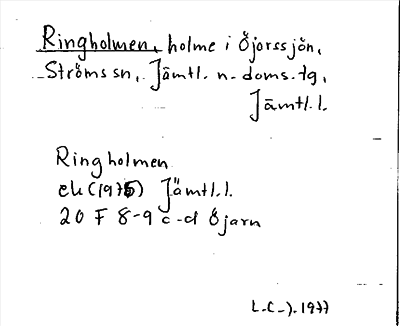 Ringholmen, holme i Öjarssjön,
Ströms sn, Jämtl. n. doms. tg,
Jämtl. l.
Ringholmen
ek (1975) Jämtl. l.
20 F 8-9 c-d Öjarn
L-C-J. 1977